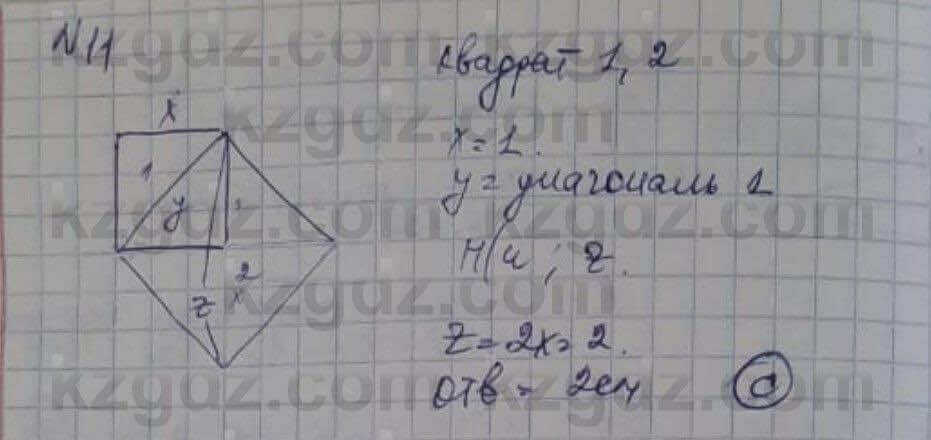 N11
Квадрат 1, 2
x
x = 1.
1
y = диагональ 1
y
Н/и ; z.
2
x
z
z = 2x = 2.
Отв = 2см d
kzgdz.com